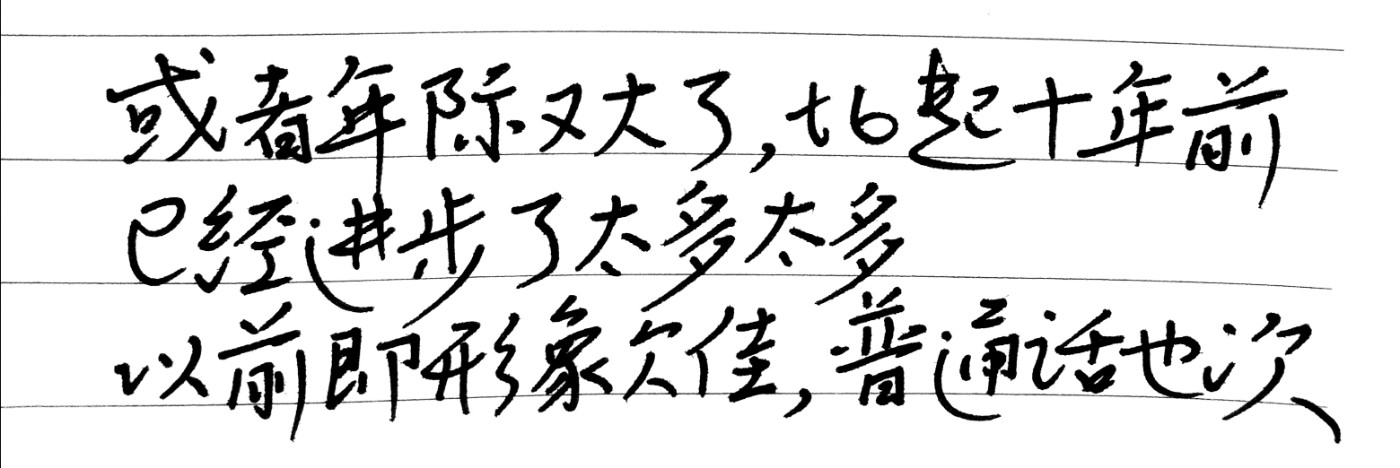 或者年际又大了,比起十年前
已经进步了太多太多
以前即形象欠佳,普通话也次、